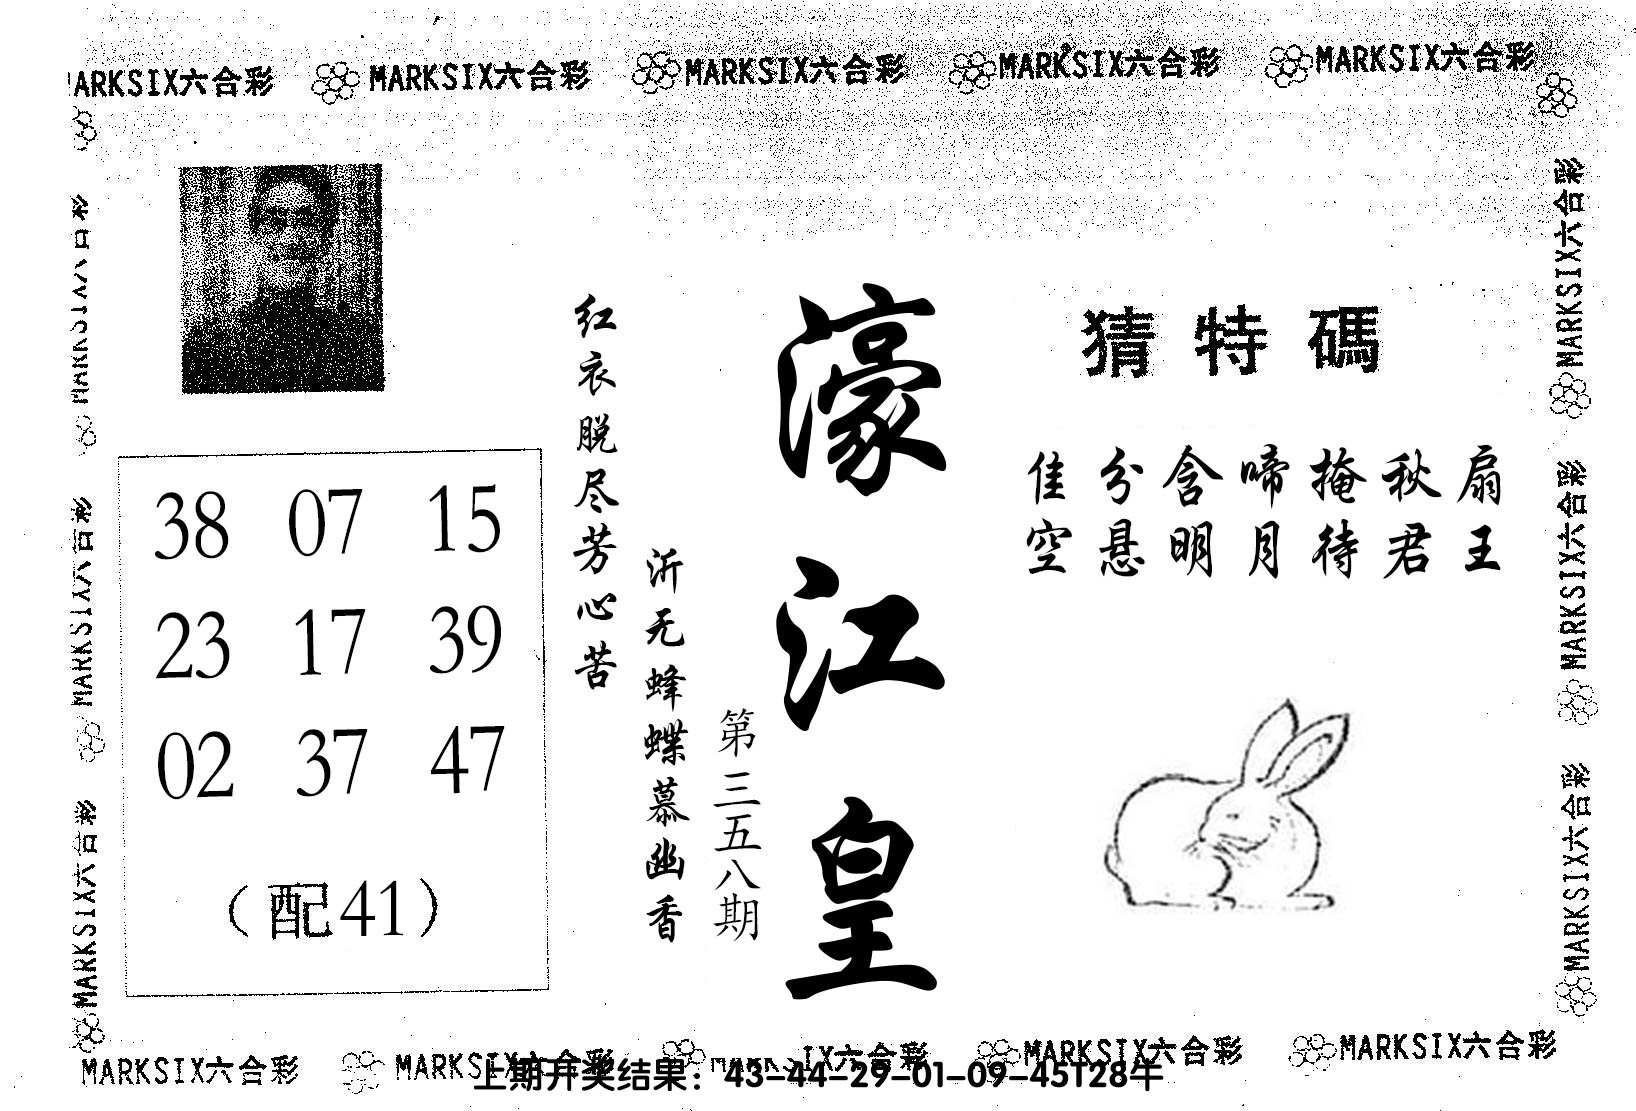 MARKSIX六合彩 MARKSIX六合彩 MARKSIX六合彩 MARKSIX六合彩 MARKSIX六合彩
MARKSIX六合彩
MARKSIX六合彩
MARKSIX六合彩
猜特碼
佳分含啼掩秋扇
空悬明月待君王
濠江皇
第三五八期
红衣脱尽芳心苦
沂无蜂蝶慕幽香
38 07 15
23 17 39
02 37 47
（配41）
MARKSIX六合彩
MARKSIX六合彩
MARKSIX六合彩
MARKSIX六合彩 MARKSIX六合彩 MARKSIX六合彩 MARKSIX六合彩 MARKSIX六合彩
上期开奖结果：43-44-29-01-09-45T28牛